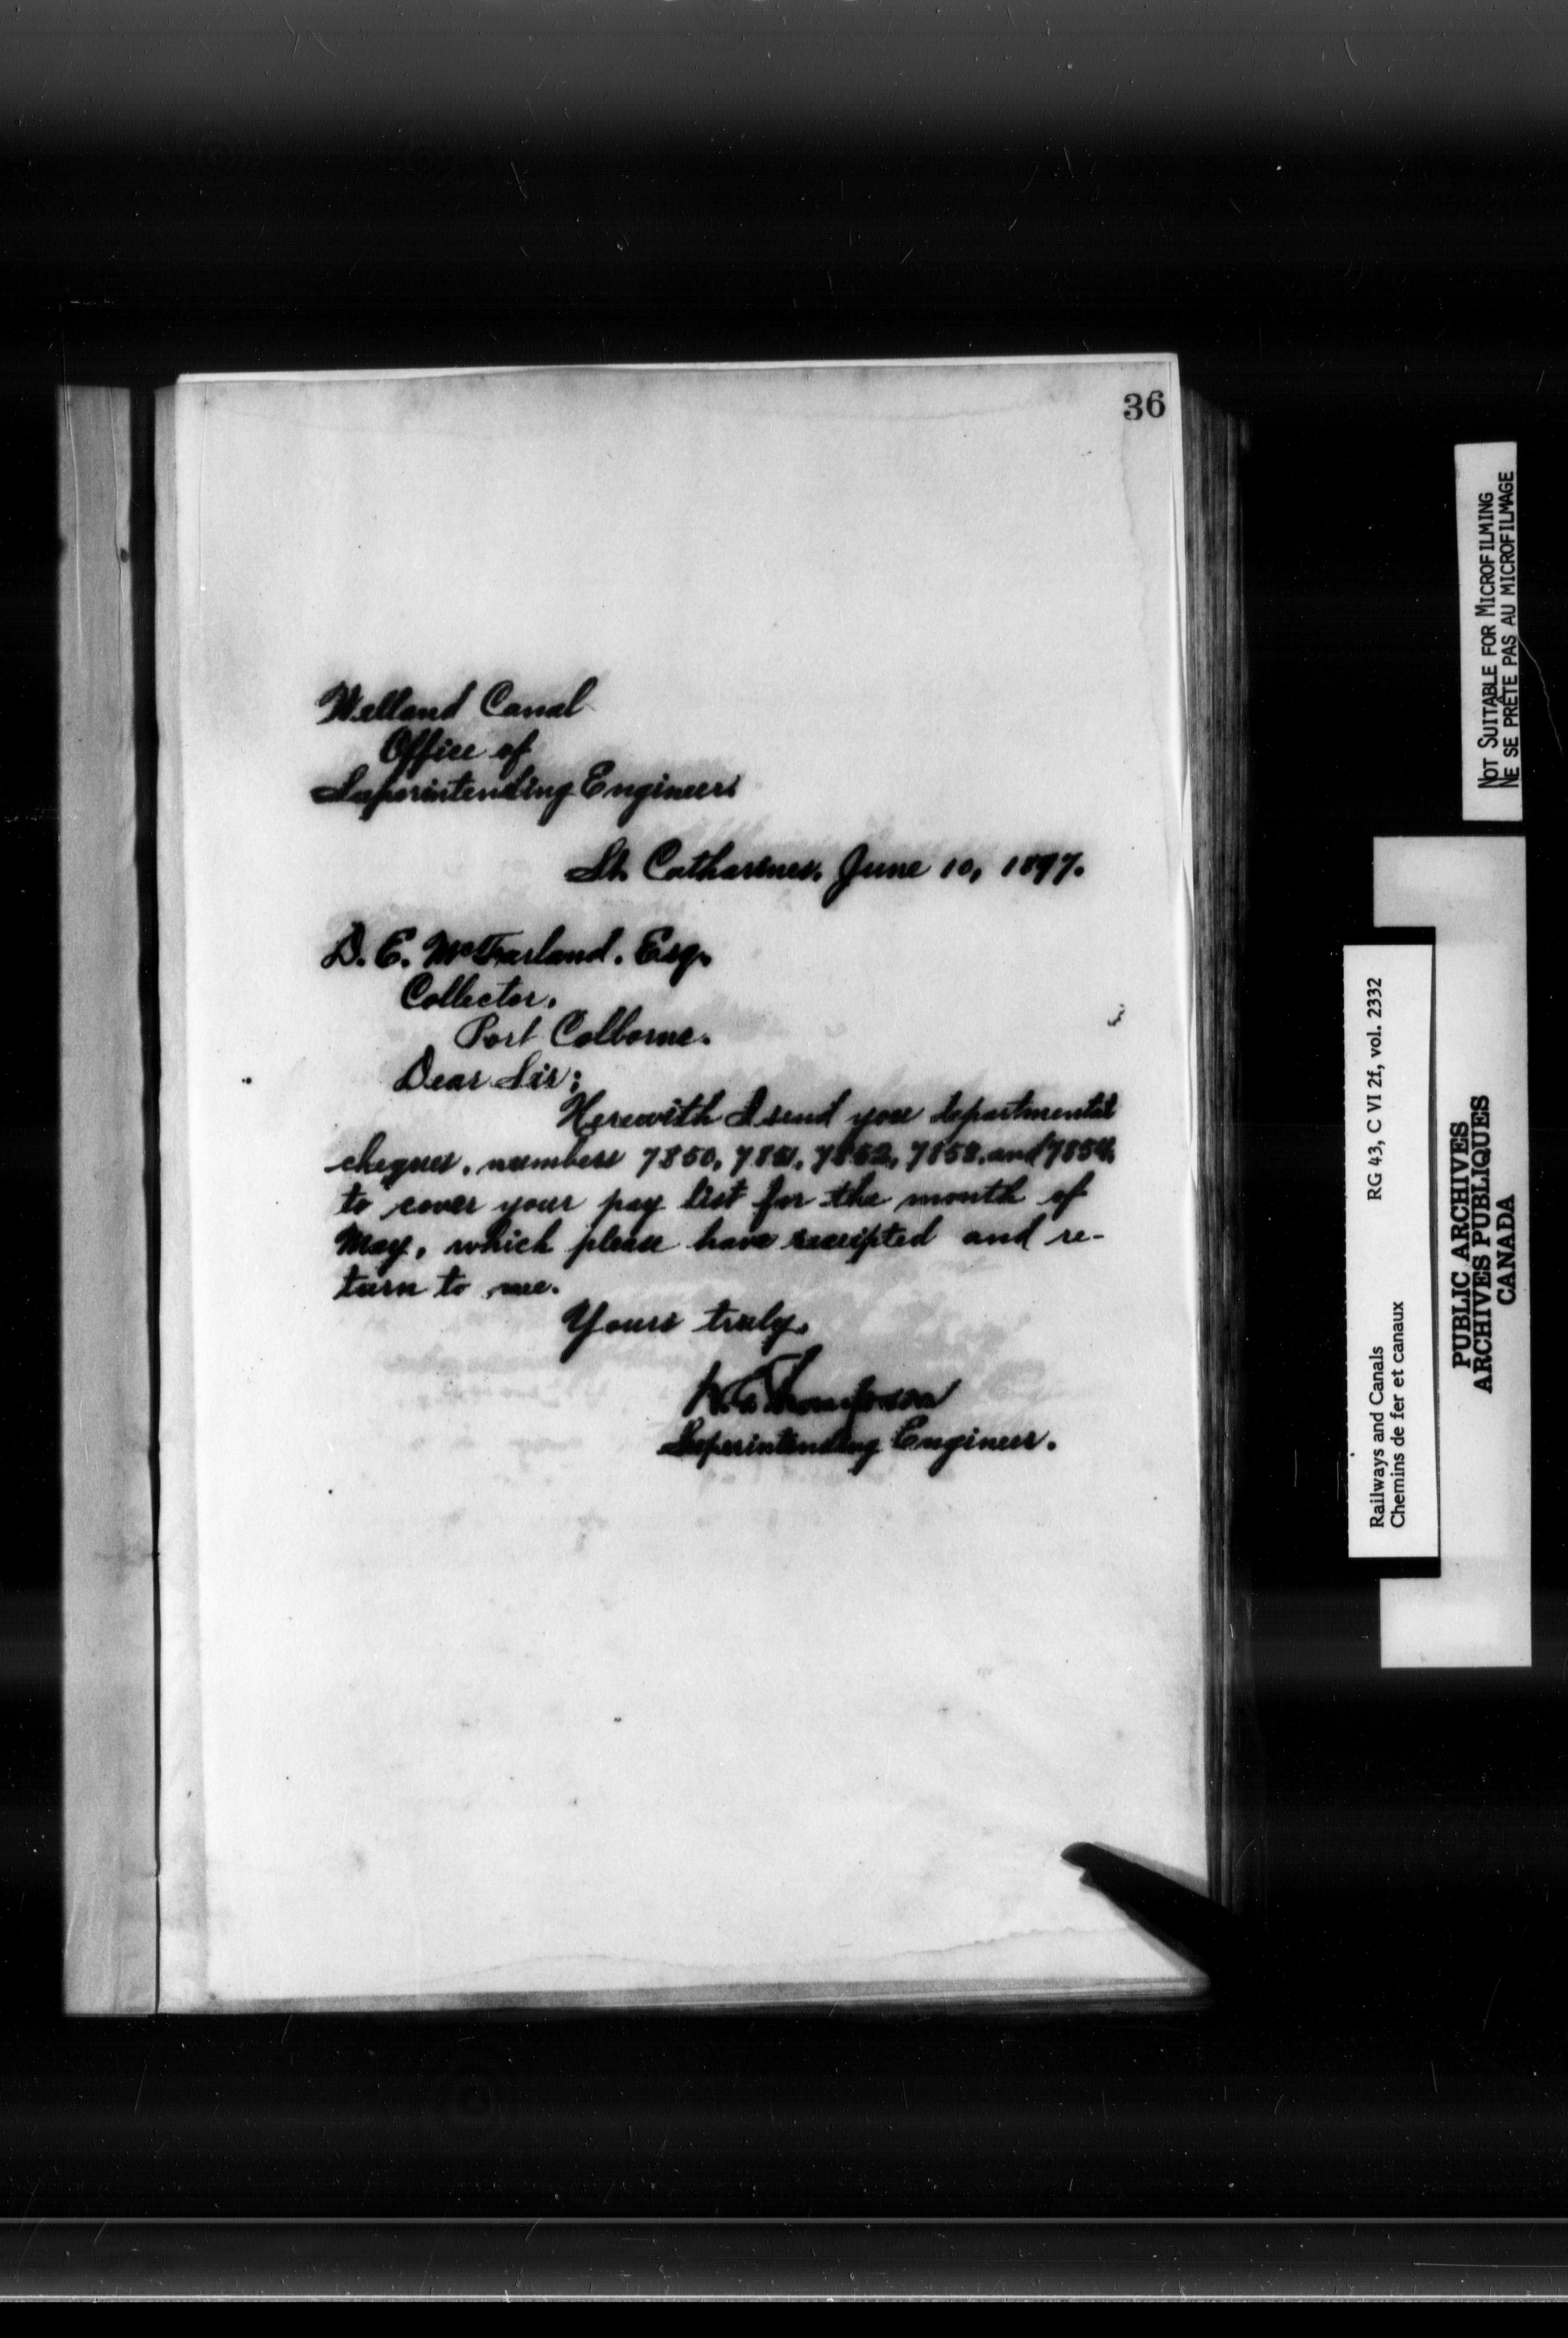 36
Welland Canal
Office of
Superintending Engineers
St. Catharines, June 10, 1897.
D. E. McFarland, Esq.
Collector,
Port Colborne.
Dear Sir:
Herewith I send you departmental
cheques, numbers 7850, 7851, 7852, 7853, and 7854,
to cover your pay list for the month of
May, which please have receipted and re-
turn to me.
Yours truly,
Thompson
Superintending Engineer.
NOT SUITABLE FOR MICROFILMING
NE SE PRÊTE PAS AU MICROFILMAGE
Railways and Canals RG 43, C VI 2f, vol. 2332
Chemins de fer et canaux
PUBLIC ARCHIVES
ARCHIVES PUBLIQUES
CANADA